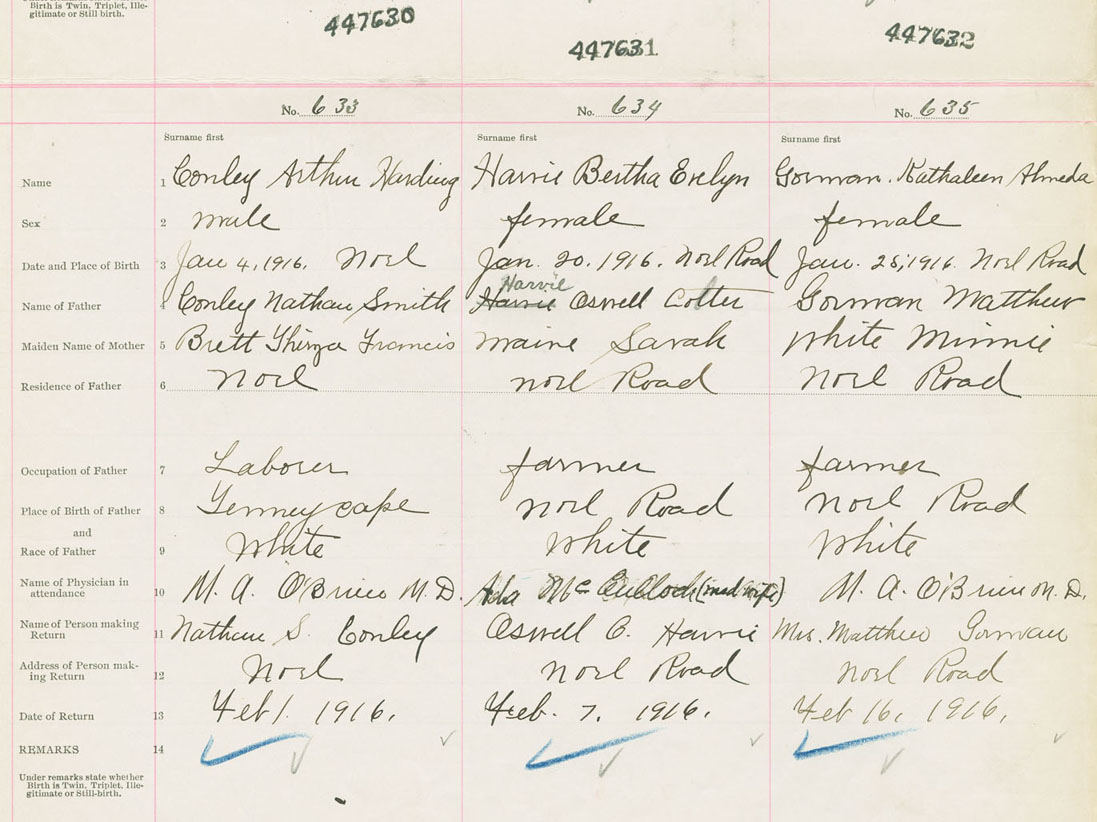 Birth is Twin, Triplet, Ille-
gitimate or Still birth.
447630
447631
447632
No. 633
No. 634
No. 635
Surname first
Surname first
Surname first
Name 1 Conley Arthur Harding Harvie Bertha Evelyn Gorman. Kathaleen Almeda
Sex 2 male female female
Date and Place of Birth 3 Jan 4, 1916. Noel Jan. 20. 1916. Noel Road Jan. 25, 1916. Noel Road
Harvie
Name of Father 4 Conley Nathan Smith Harvie Oswell Cotter Gorman Matthew
Maiden Name of Mother 5 Brett Thirza Francis Maine Sarah White Minnie
Residence of Father 6 Noel Noel Road Noel Road
Occupation of Father 7 Laborer farmer farmer
Place of Birth of Father 8 Tenneycape Noel Road Noel Road
and
Race of Father 9 White White White
Name of Physician in
attendance 10 M. A. O'Brien M. D. Ada McCulloch (midwife) M. A. O'Brien M. D.
Name of Person making
Return 11 Nathan S. Conley Oswell C. Harvie Mrs. Matthew Gorman
Address of Person mak-
ing Return 12 Noel Noel Road Noel Road
Date of Return 13 Feb 1. 1916. Feb. 7. 1916. Feb 16, 1916.
REMARKS 14
Under remarks state whether
Birth is Twin, Triplet, Ille-
gitimate or Still-birth.